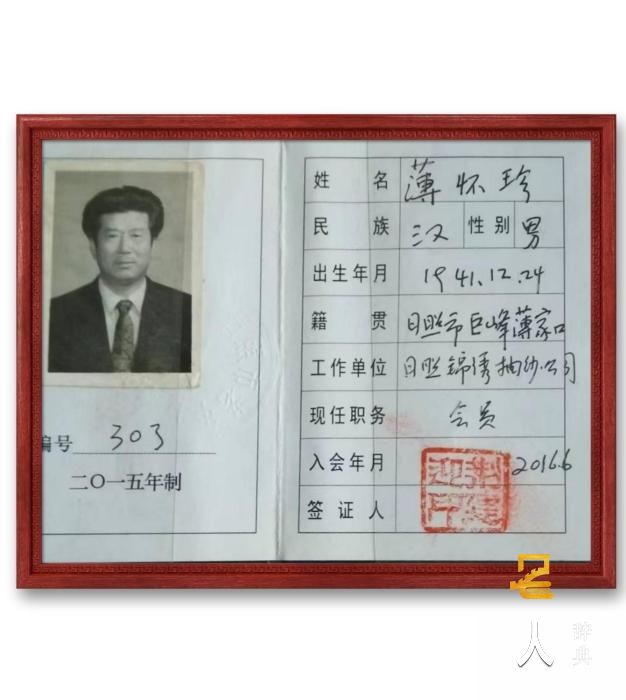 编号 303
二〇一五年制
姓 名 薄怀珍
民 族 汉 性别 男
出生年月 1941.12.24
籍 贯 日照市巨峰薄家口
工作单位 日照锦绣抽纱公司
现任职务 会员
入会年月 2016.6
签证人
名
人 辞典